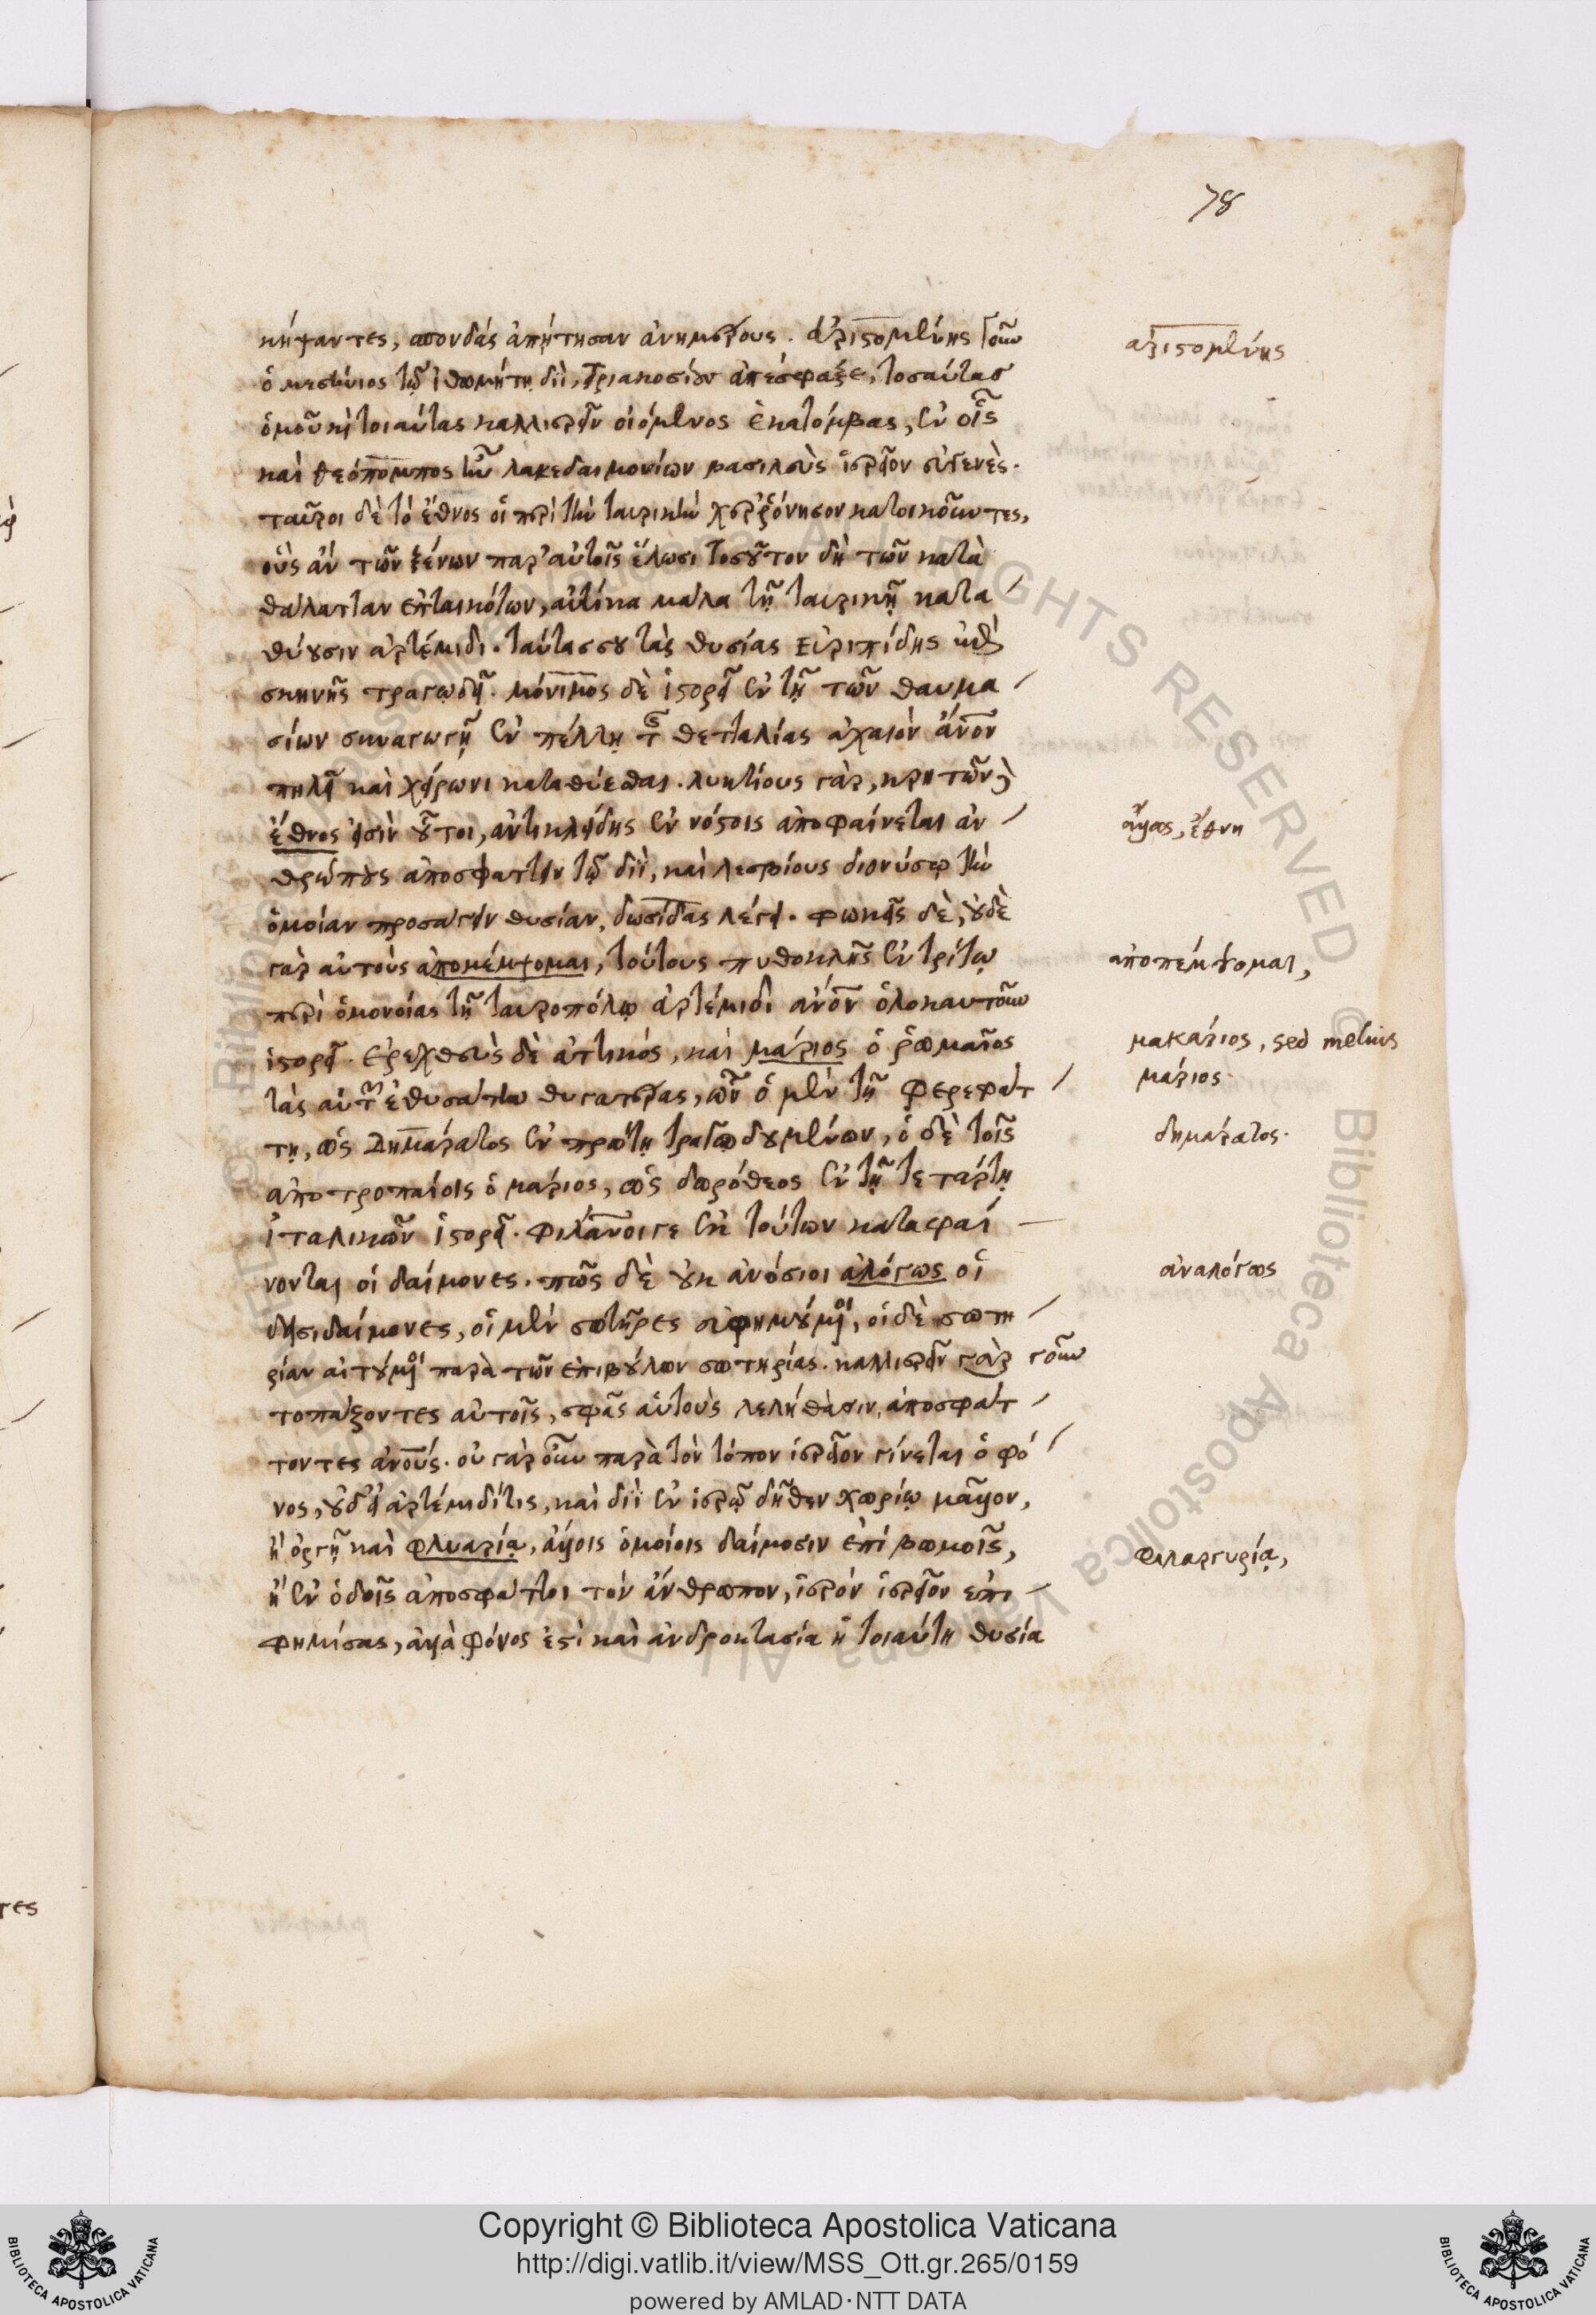 78
κήψαντες, σπονδάς ἀπήτησαν ἀνημέρους. ἀριστομένης γοῦν
ὁ μεσήνιος τῷ ἰθωμήτῃ διΐ, τριακοσίουσ ἀπέσφαξε, τοσαύτασ
ὁμοῦ κὶ τοιαύτας καλλιερεῖν οἰόμενος ἑκατόμβας, ἐν οἷς
καὶ θεόπομπος ἦν λακεδαιμονίων βασιλεὺς ἱερεῖον εὐγενὲς.
ταῦροι δὲ τὸ ἔθνος οἱ περὶ τὴν ταυρικὴν χερρόνησον κατοικοῦντες,
οὓς ἂν τῶν ξένων παρ' αὐτοῖς ἕλωσι τοσοῦτον δὴ τῶν κατὰ
θάλατταν ἐπταικότων, αὐτίκα μάλα τῇ ταυρικῇ κατα
θύουσιν ἀρτέμιδι. ταύτας σου τὰς θυσίας εὐριπίδης ἐπὶ
σκηνῆς τραγωδεῖ. μόνιμος δὲ ἱστορεῖ ἐν τῇ τῶν θαυμα
σίων συναγωγῇ ἐν πέλλῃ τῆς θετταλίας ἀχαιὸν ἄνον
πηλεῖ καὶ χείρωνι καταθύεσθαι. λυκτίους γὰρ, κρητῶν δὲ
ἔθνος εἰσὶν οὗτοι, ἀντικλείδης ἐν νόστοις ἀποφαίνεται ἀν
θρώπους ἀποσφάττειν τῷ διΐ, καὶ λεσβίους διονύσῳ τὴν
ὁμοίαν προσάγειν θυσίαν, δωσίδας λέγει. φωκεῖς δὲ, οὐδὲ
γὰρ αὐτοὺς ἀποπέμψομαι, τούτους πυθοκλῆς ἐν τρίτῳ
περὶ ὁμονοίας τῇ ταυροπόλῳ ἀρτέμιδι ἄνον ὁλοκαυτοῦν
ἱστορεῖ. ἐρεχθεὺς δὲ ἀττικός, καὶ μάριος ὁ ῥωμαῖος
τὰς αὑτῶν ἐθυσάτην θυγατέρας, ὧν ὁ μὲν τῇ φερεφάτ
τῃ, ὡς δημάρατος ἐν πρώτῃ τραγῳδουμένων, ὁ δὲ τοῖς
ἀποτροπαίοις ὁ μάριος, ὡς δωρόθεος ἐν τῇ τετάρτῃ
ἰταλικῶν ἱστορεῖ. φιλάνοι γε ἐκ τούτων καταφαί
νονται οἱ δαίμονες. πῶς δὲ οὐκ ἀνόσιοι ἀλόγως οἱ
δεισιδαίμονες, οἱ μὲν σωτῆρες εὐφημούμενοι, οἱ δὲ σωτη
ρίαν αἰτούμενοι παρὰ τῶν ἐπιβούλων σωτηρίας. καλλιερεῖν γὰρ γοῦν
τοπάζοντες αὐτοῖς, σφᾶς αὑτοὺς λελήθασιν, ἀποσφάτ
τοντες ἀνους. οὐ γὰρ οὖν παρὰ τὸν τόπον ἱερεῖον γίνεται ὁ φό
νος, οὐδ' εἰ ἀρτέμιδί τις, καὶ διῒ ἐν ἱερῷ δῆθεν χωρίῳ μᾶλλον,
ἢ ὀργῇ καὶ φλυαρίᾳ, ἄλλοις ὁμοίοις δαίμοσιν ἐπὶ βωμοῖς,
ἢ ἐν ὁδοῖς ἀποσφάττοι τὸν ἄνθρωπον, ἱερὸν ἱερεῖον ἐπι
φημίσας, ἀλλὰ φόνος ἐστὶ καὶ ἀνδροκτασία ἡ τοιαύτη θυσία
ἀριστομένης
ἄλλως, ἔθνη
ἀποπέμψομαι,
μακάριος, sed melius
μάριος.
δημάρατος.
ἀναλόγως
φιλαργυρίᾳ,
τες
© Biblioteca Apostolica Vaticana ALL RIGHTS RESERVED
Copyright © Biblioteca Apostolica Vaticana
http://digi.vatlib.it/view/MSS_Ott.gr.265/0159
powered by AMLAD·NTT DATA
BIBLIOTECA APOSTOLICA VATICANA
BIBLIOTECA APOSTOLICA VATICANA